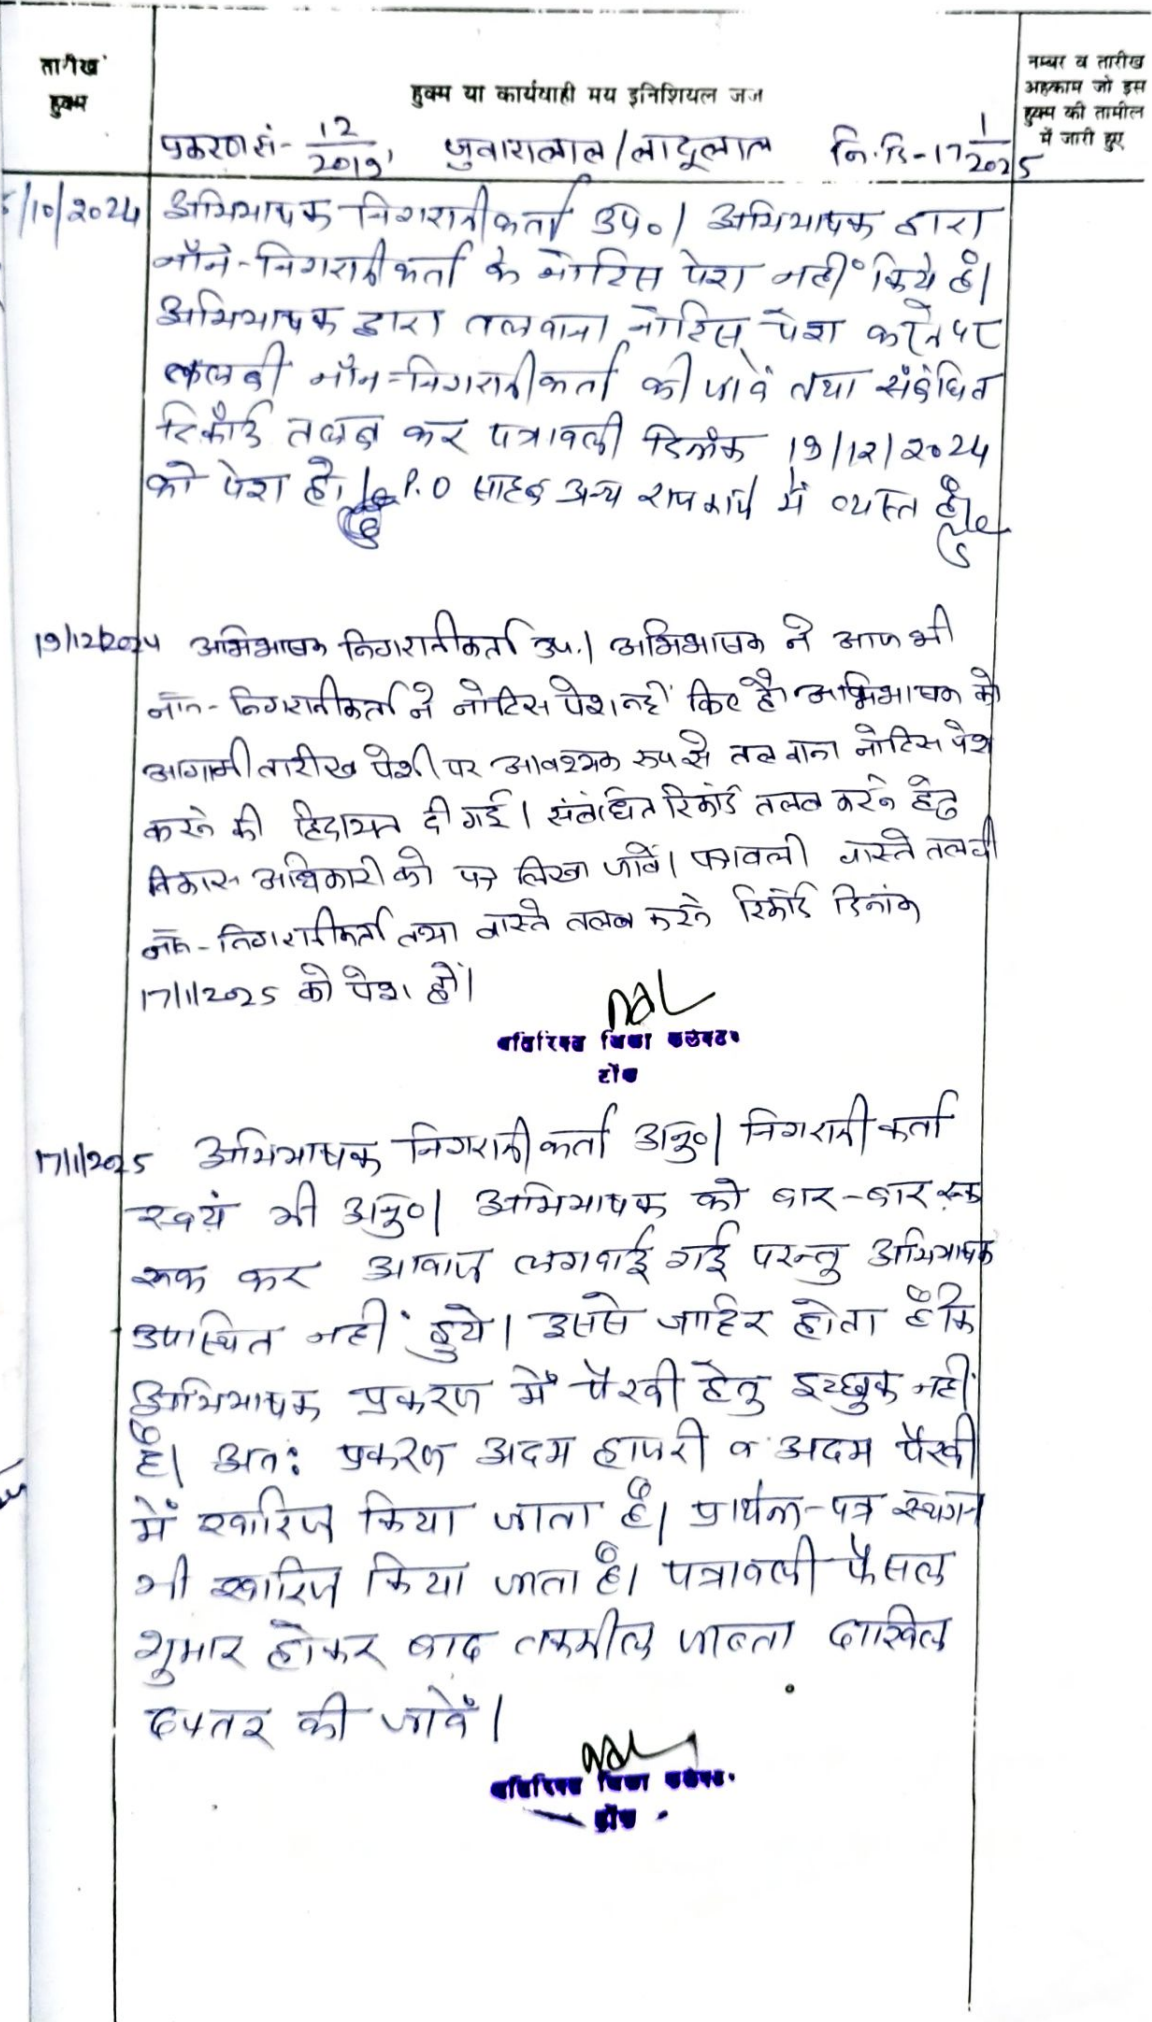 तारीख हुक्म
हुक्म या कार्यवाही मय इनिशियल जज
नम्बर व तारीख
अहकाम जो इस
हुक्म की तामील
में जारी हुए
प्रकरण सं- 12/2019, जुवारालाल/लादूलाल नि.दि-17/1/2025
/10/2024 अभिभाषक निगरानीकर्ता उप०। अभिभाषक द्वारा
नॉन-निगरानीकर्ता के नोटिस पेश नहीं किये है।
अभिभाषक द्वारा तलवाना नोटिस पेश करने पर
तलबी नॉन-निगरानीकर्ता की जावें तथा संबंधित
रिकॉर्ड तलब कर पत्रावली दिनांक 19/12/2024
को पेश हो। P.O साहब अन्य राजकार्य में व्यस्त है।
19/12/2024 अभिभाषक निगरानीकर्ता उप.। अभिभाषक ने आज भी
नॉन-निगरानीकर्ता ने नोटिस पेश नहीं किए है। अभिभाषक को
आगामी तारीख पेशी पर आवश्यक रूप से तलवाना नोटिस पेश
करने की हिदायत दी गई। संबंधित रिकॉर्ड तलब करने हेतु
विकास अधिकारी को पत्र लिखा जावें। पत्रावली वास्ते तलबी
नॉन-निगरानीकर्ता तथा वास्ते तलब करने रिकॉर्ड दिनांक
17/1/2025 को पेश हों।
अतिरिक्त जिला कलक्टर
टोंक
17/1/2025 अभिभाषक निगरानीकर्ता अनु०। निगरानीकर्ता
स्वयं भी अनु०। अभिभाषक को बार-बार रूक
रूक कर आवाज लगवाई गई परन्तु अभिभाषक
उपस्थित नहीं हुये। इससे जाहिर होता है कि
अभिभाषक प्रकरण में पैरवी हेतु इच्छुक नहीं
है। अतः प्रकरण अदम हाजरी व अदम पैरवी
में खारिज किया जाता है। प्रार्थना-पत्र स्थगन
भी खारिज किया जाता है। पत्रावली फैसल
शुमार होकर बाद तकमील जाब्ता दाखिल
दफ्तर की जावें।
अतिरिक्त जिला कलक्टर
टोंक